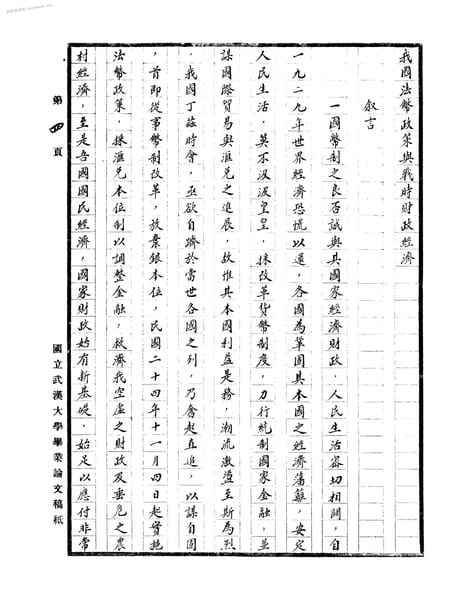 我國法幣政策與戰時財政經濟
叙言
一國幣制之良否誠與其國家經濟財政．人民生活密切相關，自
一九二九年世界經濟恐慌以還，各國為鞏固其本國之經濟藩籬，安定
人民生活，莫不汲汲皇皇．採改革貨幣制度，力行統制國家金融，並
謀國際貿易與滙兌之進展，故惟其本國利益是務，潮流激盪至斯為烈
，我國丁茲時會，亟欲自躋於當世各國之列，乃奮起直追，以謀自固
，首即從事幣制改革，放棄銀本位，民國二十四年十一月四日起實施
法幣政策，採滙兌本位制以調整金融，救濟我空虛之財政及垂危之農
村經濟，至是吾國國民經濟，國家財政始有新基礎，始足以應付非常
第四頁
國立武漢大學畢業論文稿紙